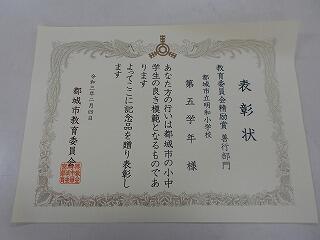 表彰状
教育委員会精励賞 善行部門
都城市立明和小学校
第五学年 様
あなた方の行いは都城市の小中
学生の良き模範となるものであ
ります
よってここに記念品を贈り表彰し
ます
令和三年二月四日
都城市教育委員会